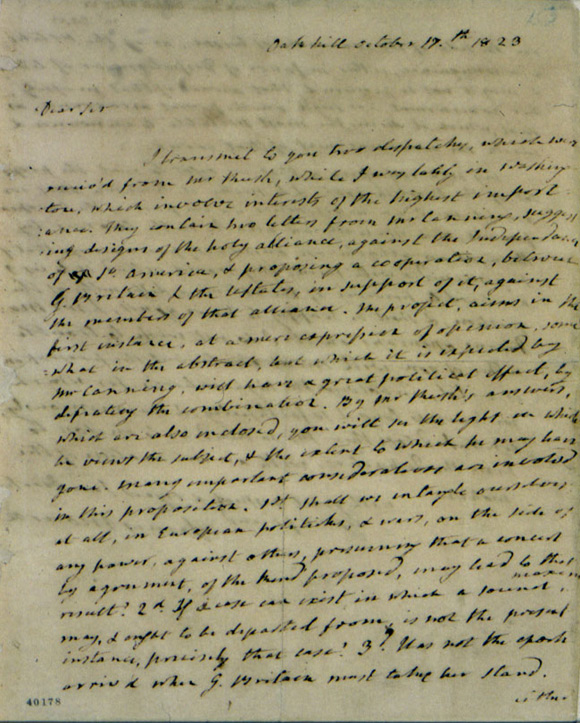 Oakhill October 17.th 1823
Dear Sir
I transmit to you two despatches, which were
receiv'd from Mr Rush, while I was lately in Washing
ton, which involve interests of the highest import
ance. They contain two letters from Mr Canning, suggest
ing designs of the holy alliance, against the Independance
of So. america, & proposing a cooperation, between
G. Britain & the UStates, in support of it, against
the members of that alliance. The project, aims in the
first instance, at a mere expression of opinion, some
what in the abstract, but which it is expected by
Mr Canning, will have a great political effect, by
defeating the combination. By Mr Rush's answers,
which are also inclosed, you will see the light in which
he views the subject, & the extent to which he may have
gone. Many important considerations are involved
in this proposition. 1st Shall we entangle ourselves,
at all, in European politicks, & wars, on the side of
any power, against others, presuming that a concert
by agreement, of the kind proposed, may lead to that
result? 2d If a case can exist, in which a sound maxim
may, & ought to be departed from, is not the present
instance, precisely that case? 3d Has not the epoch
arriv'd when G. Britain must take her stand,
either
40178